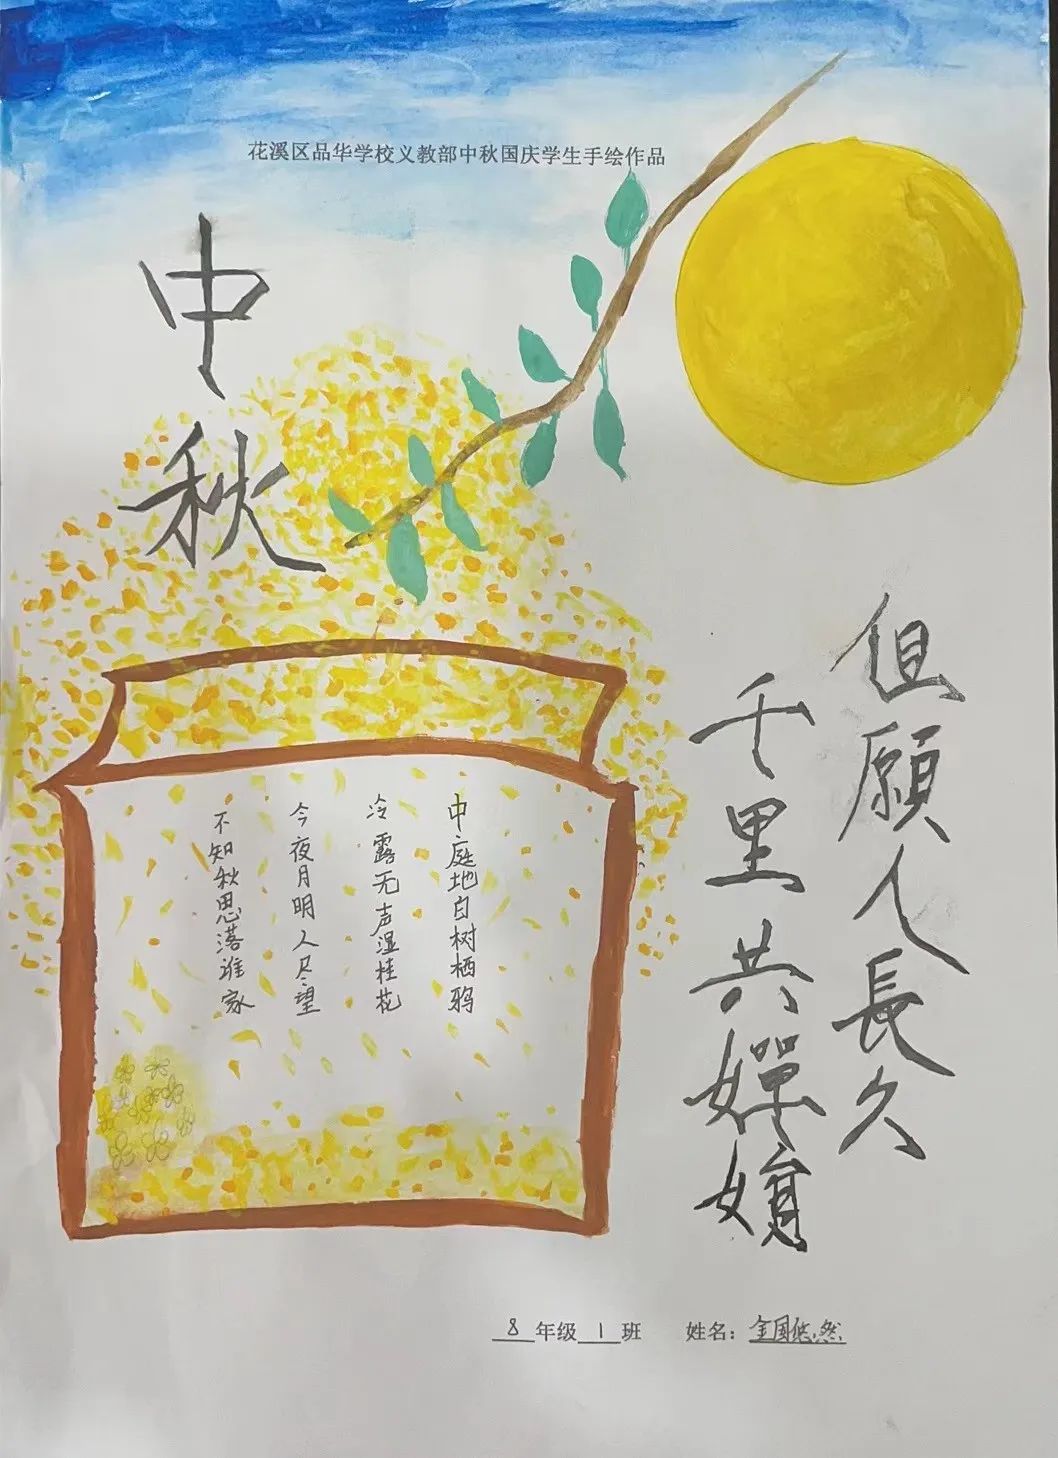 花溪区品华学校义教部中秋国庆学生手绘作品
中秋
但願人長久
千里共嬋娟
中庭地白树栖鸦
冷露无声湿桂花
今夜月明人尽望
不知秋思落谁家
8年级1班 姓名：金国悠然